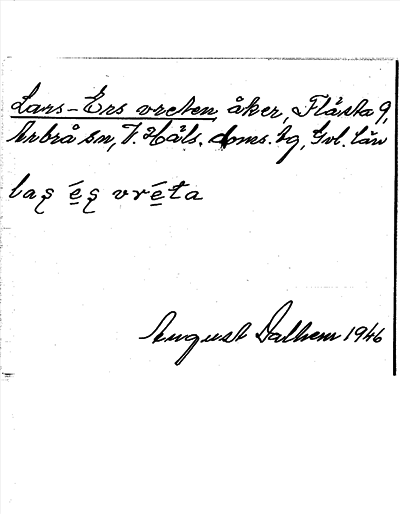 Lars-Ers vreten, åker, Flästa 9,
Arbrå sn, V. Häls. doms. tg, Gvl. län
las̨ é̲s̨ vré̲ta
August Dalhem 1946